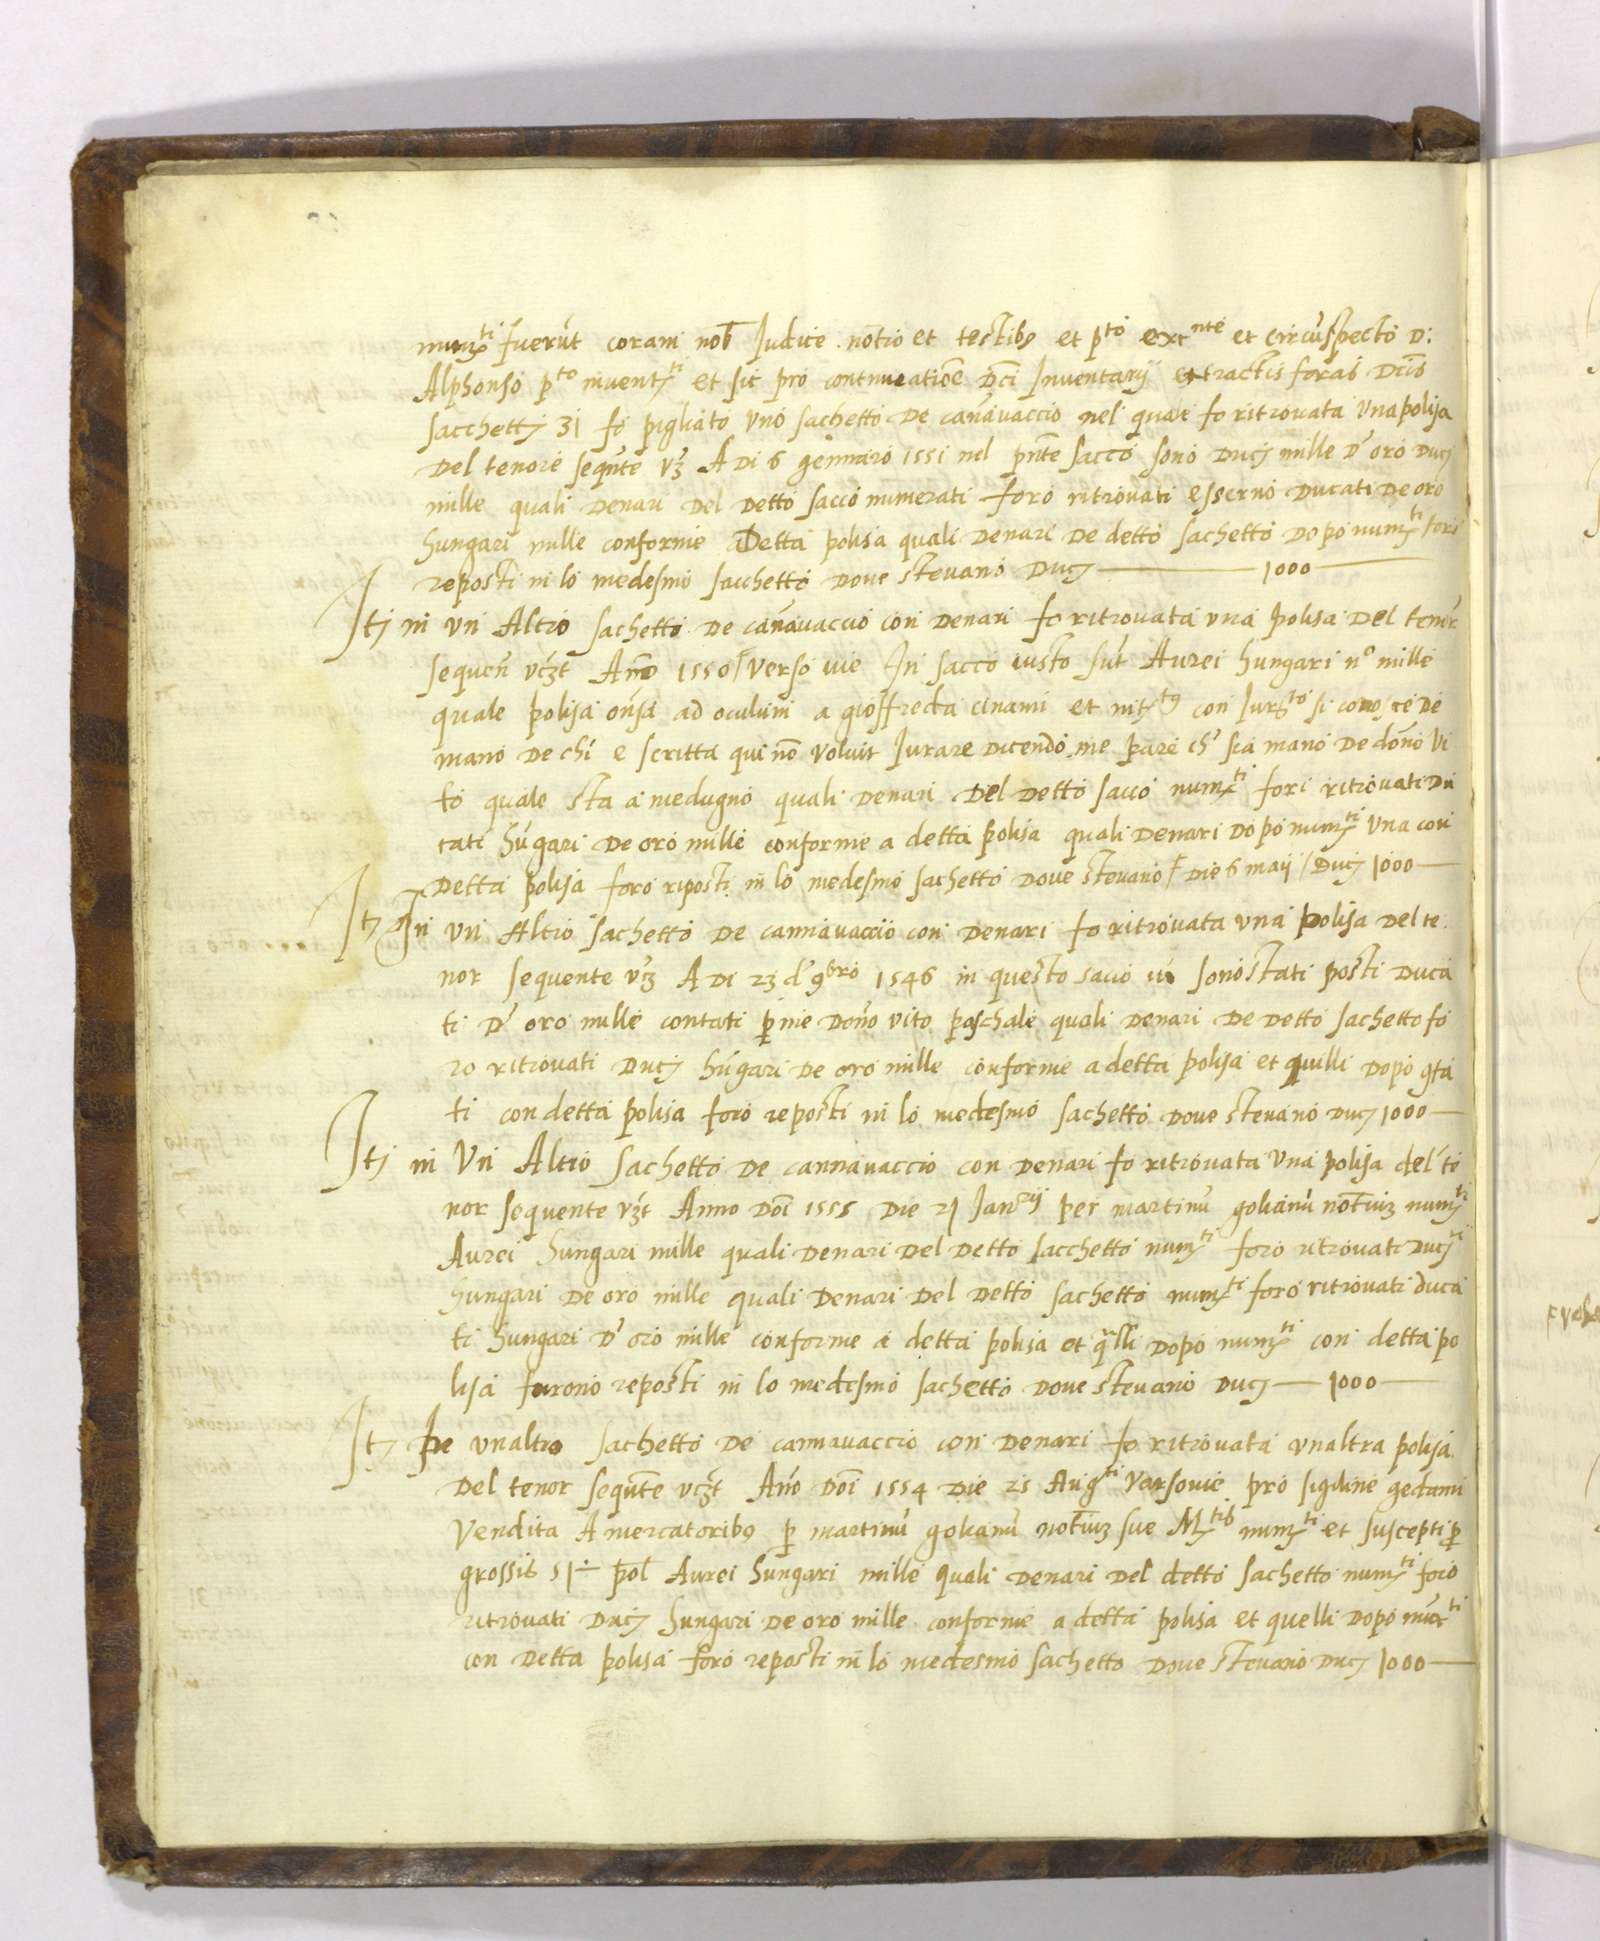 num.ti fuerūt coram nob Iudice notrio et testibus et p.to exc.nte et circūspecto D:
Alphonso p.to inuent.ti et sic pro continuatioē dci Inuentarij extractis foras Dcis
sacchettj 31 fo pigliato uno sachetto de canāuaccio nel quale fo ritrouata una polisa
del tenore sequēte vz A di 6 gennaro 1551 nel pnte sacco sono Ducj mille d' oro Ducj
mille quali denari del detto sacco numerati foro ritrouati esserno Ducati de oro
hungari mille conforme a detta polisa quali denari de detto sachetto dopo num.ti foro
reposti in lo medesmo sacchetto doue steuano Ducj — 1000 —
Itj in un Altro sachetto de canāuaccio con denari fo ritrouata una polisa del tenor
sequen vczt Anno 1550 / versouie In sacco iusto sūt Aurei hungari n° mille
quale polisa onsa ad oculum a gioffreda cinami et con Iur.to si conosce de
mano de chi e scritta qui nō voluit Iurare dicendo me pare ch' sia mano de dōno Vi
to quale sta a medugno quali denari del detto sacco num.ti fori ritrouati Du
cati hūgari de oro mille conforme a detta polisa quali denari dopo num.ti una con
detta polisa foro riposti in lo medesmo sachetto doue steuano / die 6 maij / Ducj 1000 —
Itj In un Altro sachetto de cannauaccio con denari fo ritrouata una polisa del te
nor sequente vz A di 23 d' 9bro 1546 in questo sacco sono stati posti Duca
ti d' oro mille contati p me Donno vito paschale quali denari de detto sachetto fo
ro ritrouati Ducj hūgari de oro mille conforme a detta polisa et quilli dopo 9ta
ti con detta polisa foro reposti in lo medesmo sachetto doue steuano Ducj 1000 —
Itj in Un Altro sachetto de cannauaccio con denari fo ritrouata una polisa del te
nor sequente vzt Anno Doi 1555 die 21 Ian.rij per martinū golianū notriuz num.ti
Aurei hungari mille quali denari del detto sacchetto num.ti foro ritrouati Ducj
hungari de oro mille quali denari del detto sachetto num.ti foro ritrouati duca
ti hungari d' oro mille conforme a detta polisa et q̄lli dopo num.ti con detta po
lisa furono reposti in lo medesmo sachetto doue steuano Ducj — 1000 —
Itj In unaltro sachetto de cannauaccio con denari fo ritrouata unaltra polisa
del tenor sequēte vczt Anō Doi 1554 die 25 Aug.ti Varsouie pro gedami
Vendita A mercatoribus p martinū golianū notriuz sue M.tis num.ti et suscepti p
grossis 51 pol Aurei hungari mille quali denari del detto sachetto num.ti foro
ritrouati Ducj hungari de oro mille conforme a detta polisa et quelli dopo num.ti
con detta polisa foro reposti in lo medesmo sachetto doue steuano Ducj 1000 —